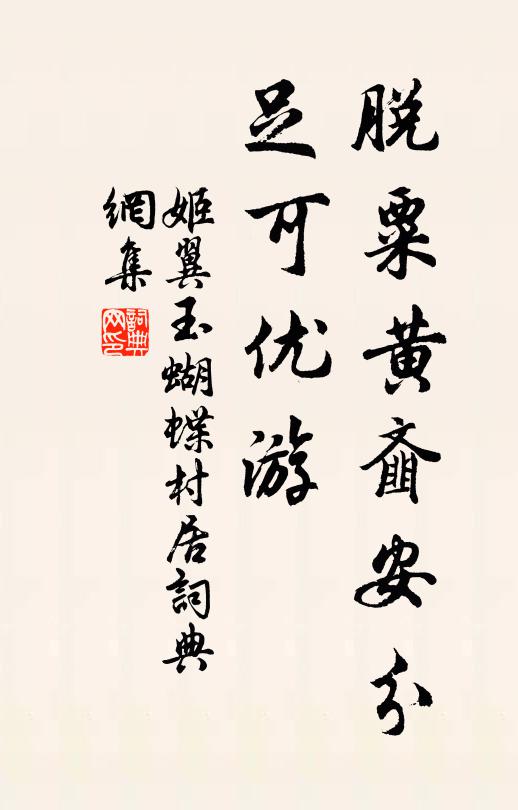 脱粟黄齑安分
足可优游
姬翼玉蝴蝶村居詞典
網集
詞典
网印